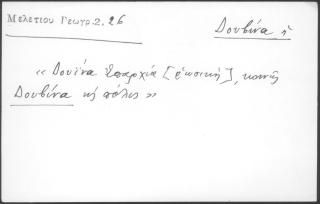 Μελετίου Γεωγρ. 2. 26
Δουβίνα ἡ
« Δουΐνα Ἐπαρχία [ρωσική], κοινῶς
Δουβίνα κὴ πόλις »